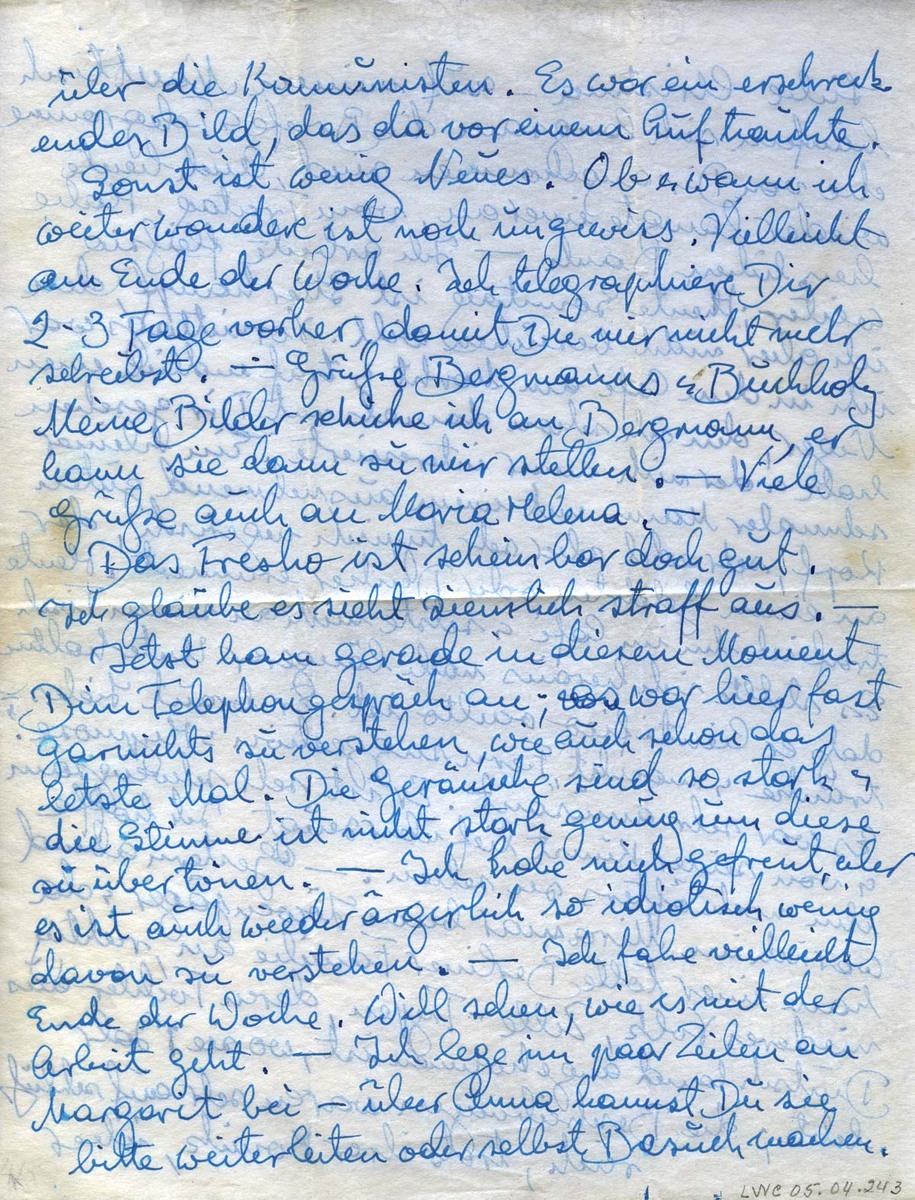 über die Kommunisten. Es war ein erschreck-
endes Bild, das da vor einem Auftauchte.
Sonst ist wenig Neues. Ob u. wann ich
weiter wandere ist noch ungewiss. Vielleicht
am Ende der Woche. Ich telegraphiere Dir
2-3 Tage vorher, damit Du mir nicht mehr
schreibst. — Grüße Bergmanns u. Buchholz
Meine Bilder schicke ich an Bergmann, er
kann sie dann zu mir stellen. — Viele
Grüße auch an Maria Helena. —
Das Fresko ist scheinbar doch gut.
Ich glaube es sieht ziemlich straff aus. —
Jetzt kam gerade in diesem Moment
Dein Telephongespräch an; es war hier fast
garnichts zu verstehen, wie auch schon das
letzte Mal. Die Geräusche sind so stark u.
die Stimme ist nicht stark genug um diese
zu übertönen. — Ich habe mich gefreut, aber
es ist auch wieder ärgerlich so idiotisch wenig
davon zu verstehen. — Ich fahre vielleicht
Ende der Woche. Will sehen, wie es mit der
Arbeit geht. — Ich lege ein paar Zeilen an
Margarit bei — über Anna kannst Du sie
bitte weiterleiten oder selbst Besuch machen.
LVVC 05.04.243